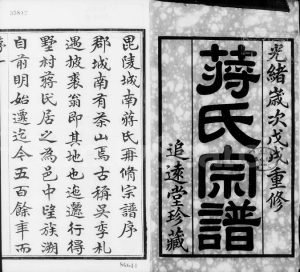 光緒歲次戊戌重修
蔣氏宗譜
追遠堂珍藏
毘陵城南蔣氏再脩宗譜序
郡城南有茶山焉古稱吳季札
遇披裘翁即其地也迤邐行得
墅村蔣氏居之為邑中望族溯
自前明始遷迄今五百餘年而